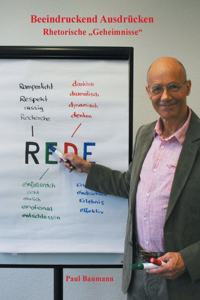 Beeindruckend Ausdrücken
Rhetorische „Geheimnisse“
Rampenlicht
Respekt
rassig
Recherche
dankbar
dramatisch
dynamisch
denken
REDE
einfallsreich
echt
emotional
entschlossen
Erlebnis
effektiv
Paul Baumann